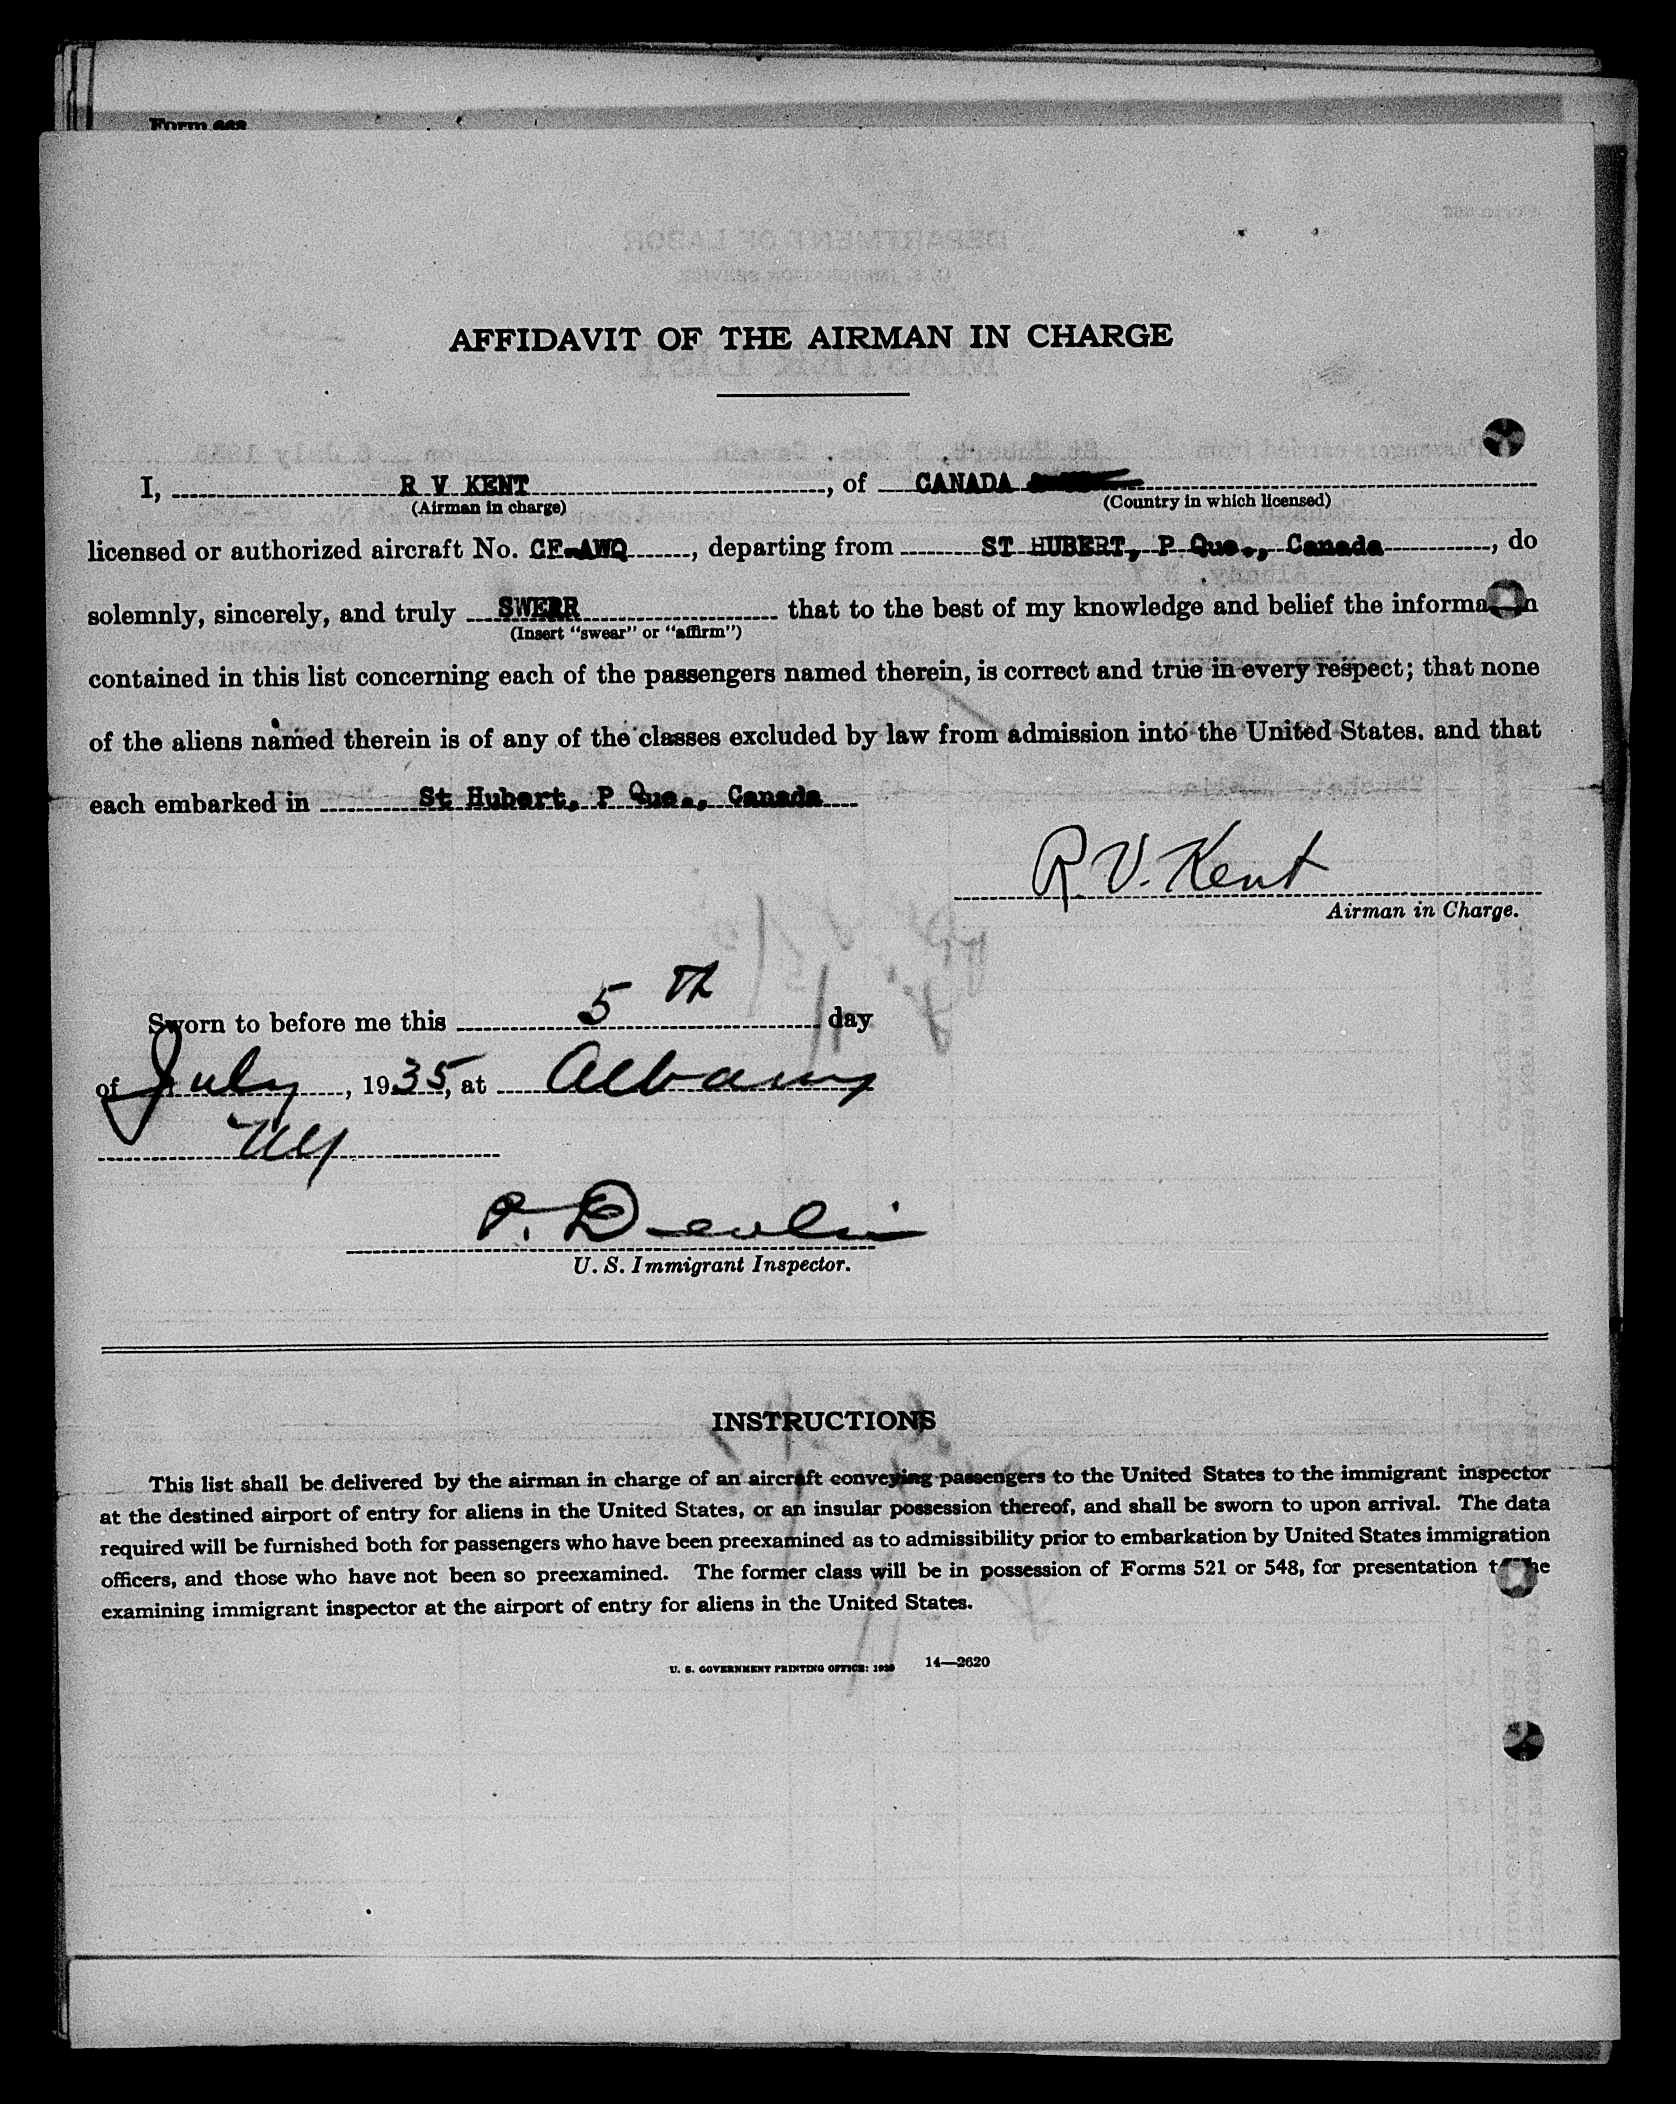 Form
AFFIDAVIT OF THE AIRMAN IN CHARGE
I, R V KENT, of CANADA
(Airman in charge) (Country in which licensed)
licensed or authorized aircraft No. CF-AWQ, departing from ST HUBERT, P Que., Canada, do
solemnly, sincerely, and truly SWEAR that to the best of my knowledge and belief the information
(Insert "swear" or "affirm")
contained in this list concerning each of the passengers named therein, is correct and true in every respect; that none
of the aliens named therein is of any of the classes excluded by law from admission into the United States. and that
each embarked in St Hubert, P Que., Canada
R. V. Kent
Airman in Charge.
Sworn to before me this 5 th day
of July, 1935, at Albany
NY
P. Devlin
U. S. Immigrant Inspector.
INSTRUCTIONS
This list shall be delivered by the airman in charge of an aircraft conveying passengers to the United States to the immigrant inspector
at the destined airport of entry for aliens in the United States, or an insular possession thereof, and shall be sworn to upon arrival. The data
required will be furnished both for passengers who have been preexamined as to admissibility prior to embarkation by United States immigration
officers, and those who have not been so preexamined. The former class will be in possession of Forms 521 or 548, for presentation to the
examining immigrant inspector at the airport of entry for aliens in the United States.
U. S. GOVERNMENT PRINTING OFFICE: 14—2620